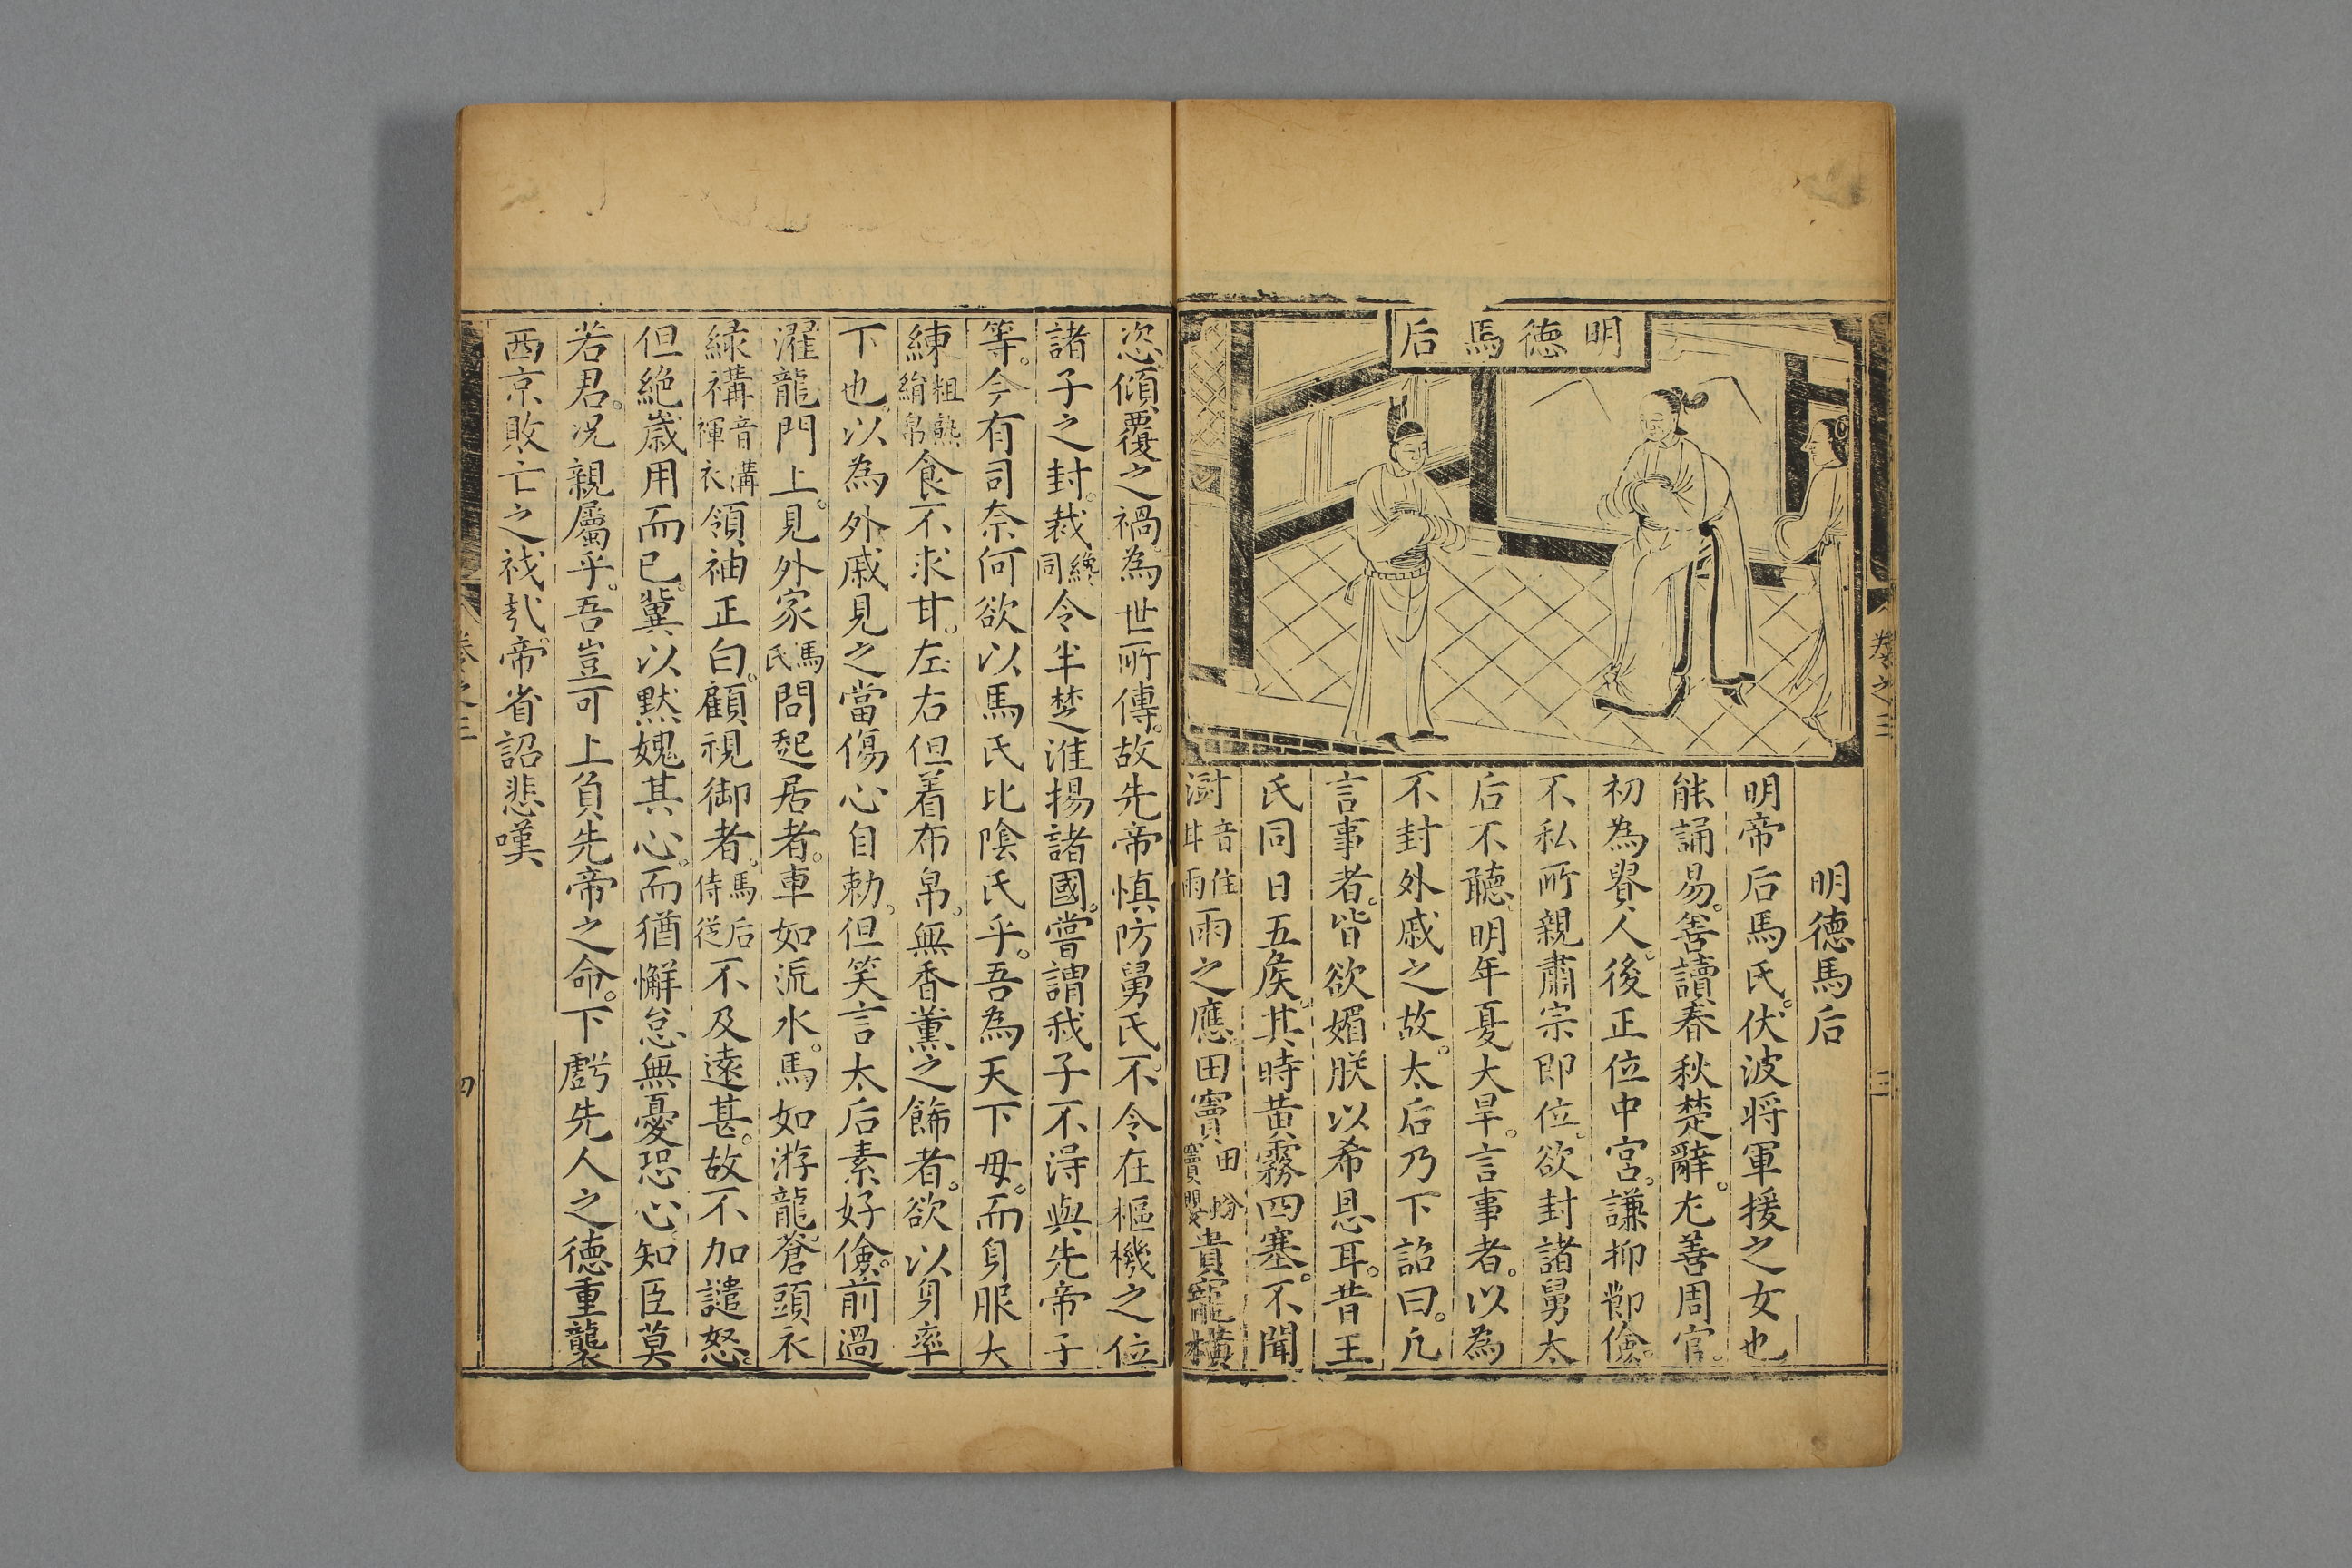 明德馬后
卷之三
三
明德馬后
明帝后馬氏。伏波将軍援之女也
能誦易。善讀春秋楚辭。尤善周官。
初為貴人。後正位中宮。謙抑節儉。
不私所親肅宗即位。欲封諸舅太
后不聽明年夏大旱。言事者。以為
不封外戚之故。太后乃下詔曰。凢
言事者。皆欲媚朕以希恩耳。昔王
氏同日五矦。其時黃霧四塞。不聞
澍音住時雨雨之應。田竇田蚡竇嬰貴寵橫
恣傾覆之禍。為世所傳。故先帝慎防舅氏。不令在樞機之位
諸子之封。裁纔同令半楚淮揚諸國。嘗謂我子不得與先帝子
等。今有司奈何欲以馬氏比陰氏乎。吾為天下母。而身服大
練粗熟絹帛食不求甘。左右但着布帛。無香薰之飾者。欲以身率
下也。以為外戚見之當傷心自勅。但笑言太后素好儉。前過
濯龍門上。見外家馬氏問起居者。車如流水。馬如游龍。蒼頭衣
綠褠音溝襌衣領袖正白。顧視御者。馬后侍從不及遠甚。故不加譴怒。
但絕歲用而已。冀以默媿其心。而猶懈怠無憂恐心。知臣莫
若君。况親屬乎。吾豈可上負先帝之命。下虧先人之德重襲
西京敗亡之哉。帝省詔悲嘆
卷之三
四